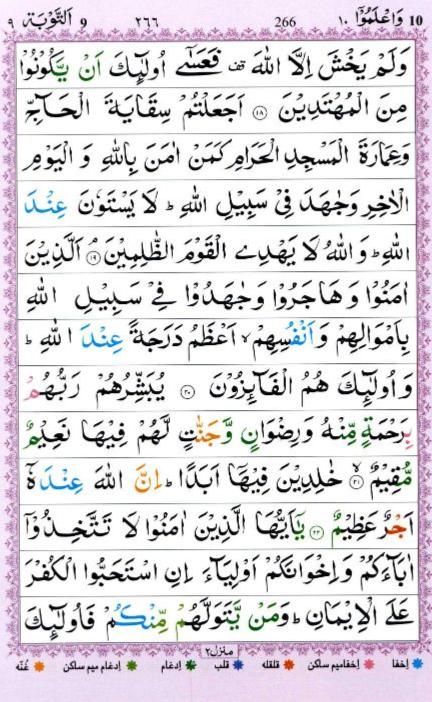 ١٠ وَاعْلَمُوْٓا 10 266 ٢٦٦ 9 اَلتَّوْبَة ٩
وَلَمْ يَخْشَ اِلَّا اللّٰهَ قف فَعَسٰٓى اُولٰٓئِكَ اَنْ يَّكُوْنُوْا
مِنَ الْمُهْتَدِيْنَ ۝١٨ اَجَعَلْتُمْ سِقَايَةَ الْحَآجِّ
وَعِمَارَةَ الْمَسْجِدِ الْحَرَامِ كَمَنْ اٰمَنَ بِاللّٰهِ وَ الْيَوْمِ
الْاٰخِرِ وَجٰهَدَ فِيْ سَبِيْلِ اللّٰهِ ؕ لَا يَسْتَوٗنَ عِنْدَ
اللّٰهِ ؕ وَاللّٰهُ لَا يَهْدِى الْقَوْمَ الظّٰلِمِيْنَ ۝١٩ اَلَّذِيْنَ
اٰمَنُوْا وَهَاجَرُوْا وَجٰهَدُوْا فِيْ سَبِيْلِ اللّٰهِ
بِاَمْوَالِهِمْ وَاَنْفُسِهِمْ ۙ اَعْظَمُ دَرَجَةً عِنْدَ اللّٰهِ ؕ
وَاُولٰٓئِكَ هُمُ الْفَآئِزُوْنَ ۝٢٠ يُبَشِّرُهُمْ رَبُّهُمْ
بِرَحْمَةٍ مِّنْهُ وَرِضْوَانٍ وَّجَنّٰتٍ لَّهُمْ فِيْهَا نَعِيْمٌ
مُّقِيْمٌ ۙ۝٢١ خٰلِدِيْنَ فِيْهَآ اَبَدًا ؕ اِنَّ اللّٰهَ عِنْدَهٗٓ
اَجْرٌ عَظِيْمٌ ۝٢٢ يٰٓاَيُّهَا الَّذِيْنَ اٰمَنُوْا لَا تَتَّخِذُوْٓا
اٰبَآءَكُمْ وَاِخْوَانَكُمْ اَوْلِيَآءَ اِنِ اسْتَحَبُّوا الْكُفْرَ
عَلَى الْاِيْمَانِ ؕ وَمَنْ يَّتَوَلَّهُمْ مِّنْكُمْ فَاُولٰٓئِكَ
منزل٢
اِخفا اِخفامیم ساکن قلقله قلب اِدغام اِدغام میم ساکن غُنّه